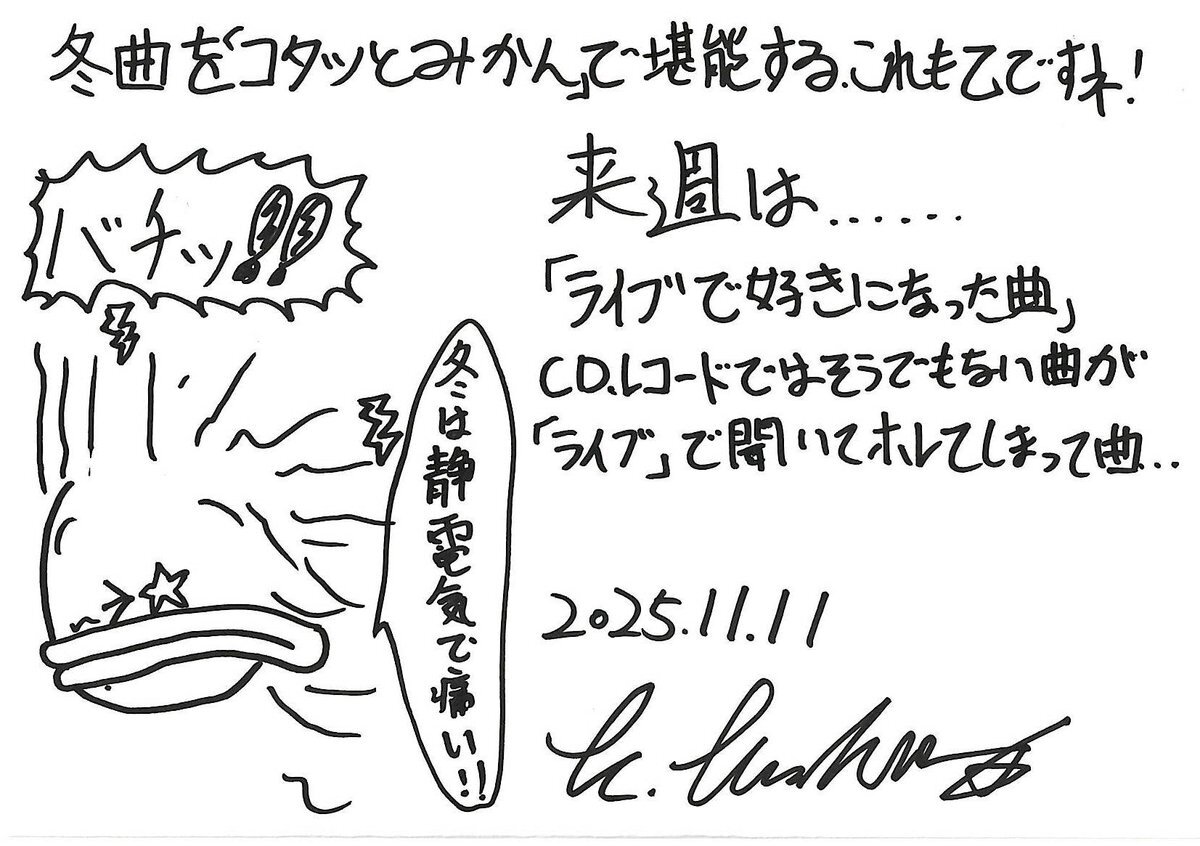 冬曲を「コタッとみかん」で堪能する、これも乙ですネ!
バチッ!!
来週は......
「ライブで好きになった曲」
CD、レコードではそうでもない曲が
「ライブ」で聞いてホレてしまって曲...
冬は静電気で痛い!!
2025.11.11